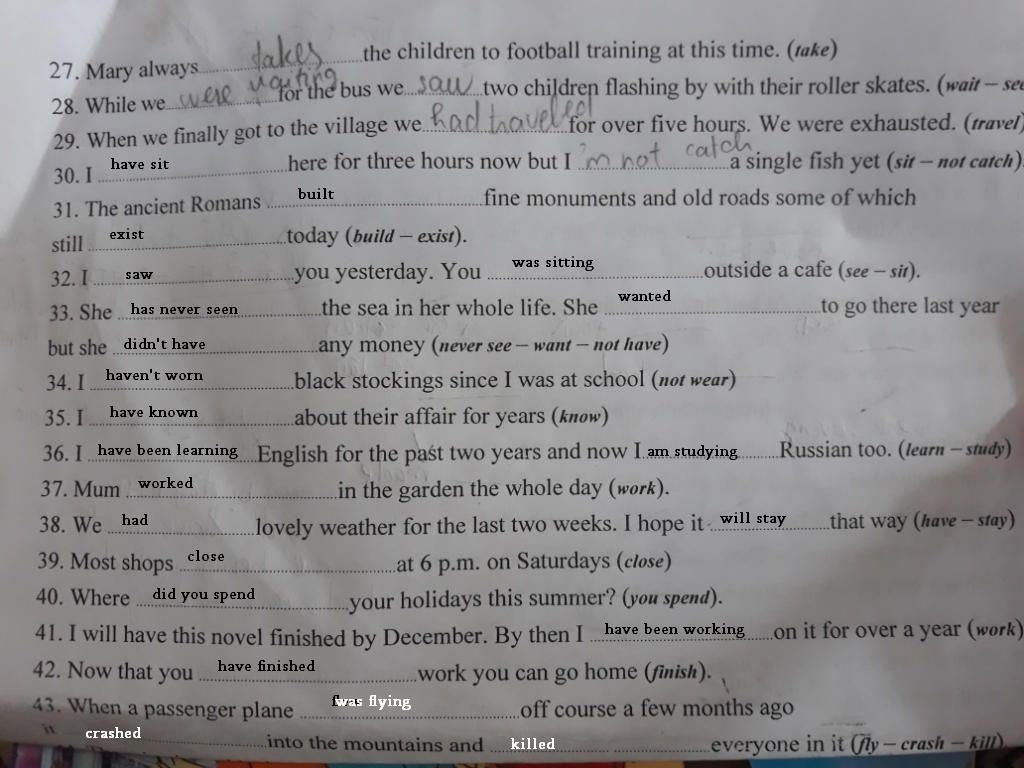 27. Mary always takes the children to football training at this time. (take)
28. While we were waiting for the bus we saw two children flashing by with their roller skates. (wait – see
29. When we finally got to the village we had travelled for over five hours. We were exhausted. (travel)
30. I have sit here for three hours now but I 'm not catch a single fish yet (sit – not catch)
31. The ancient Romans built fine monuments and old roads some of which
still exist today (build – exist).
32. I saw you yesterday. You was sitting outside a cafe (see – sit).
33. She has never seen the sea in her whole life. She wanted to go there last year
but she didn't have any money (never see – want – not have)
34. I haven't worn black stockings since I was at school (not wear)
35. I have known about their affair for years (know)
36. I have been learning English for the past two years and now I am studying Russian too. (learn – study)
37. Mum worked in the garden the whole day (work).
38. We had lovely weather for the last two weeks. I hope it will stay that way (have – stay)
39. Most shops close at 6 p.m. on Saturdays (close)
40. Where did you spend your holidays this summer? (you spend).
41. I will have this novel finished by December. By then I have been working on it for over a year (work)
42. Now that you have finished work you can go home (finish).
43. When a passenger plane was flying off course a few months ago
it crashed into the mountains and killed everyone in it (fly – crash – kill)